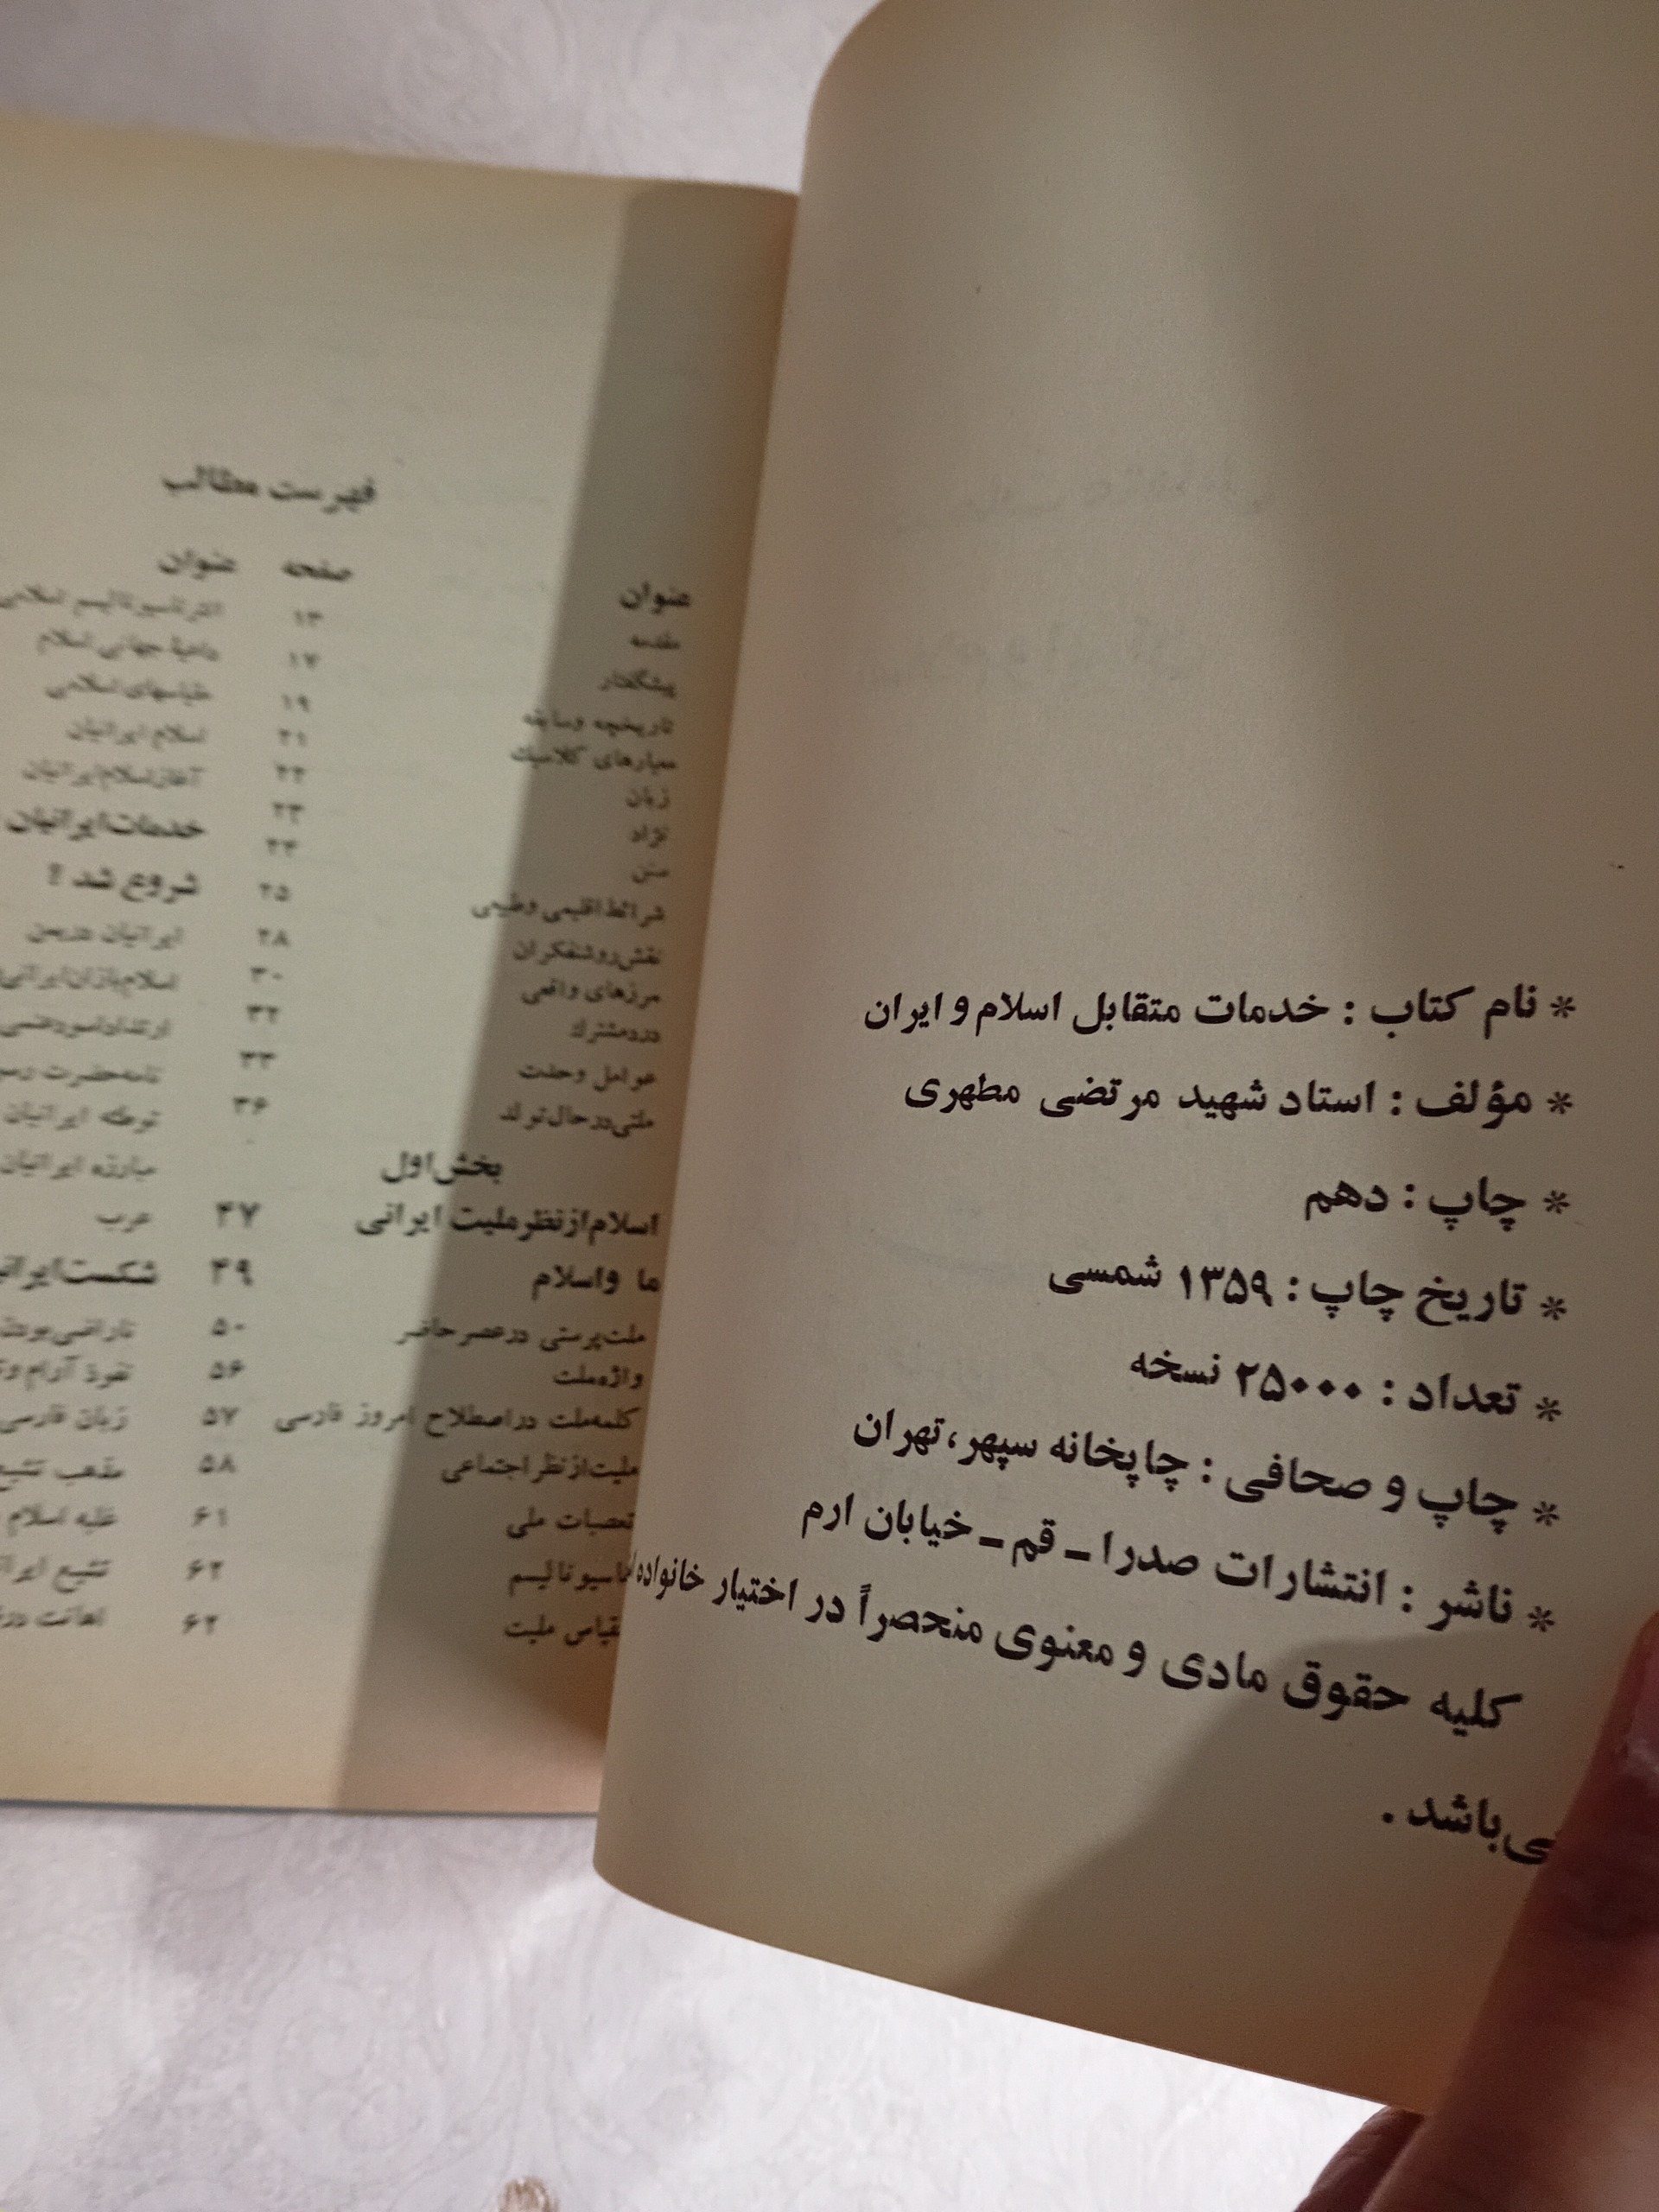 * نام کتاب : خدمات متقابل اسلام و ایران
* مؤلف : استاد شهید مرتضی مطهری
* چاپ : دهم
* تاریخ چاپ : ۱۳۵۹ شمسی
* تعداد : ۲۵۰۰۰ نسخه
* چاپ و صحافی : چاپخانه سپهر، تهران
* ناشر : انتشارات صدرا ـ قم ـ خیابان ارم
کلیه حقوق مادی و معنوی منحصراً در اختیار خانواده
ی‌باشد .
فهرست مطالب
عنوان صفحه
مقدمه ۱۳
پیشگفتار ۱۷
تاریخچه و سابقه ۱۹
معیارهای کلاسیک ۲۱
زبان ۲۲
نژاد ۲۳
سنن ۲۴
شرائط اقلیمی و طبیعی ۲۵
نقش روشنفکران ۲۸
مرزهای واقعی ۳۰
درد مشترک ۳۲
عوامل وحدت ۳۳
ملتی در حال تولد ۳۶
بخش اول
اسلام از نظر ملیت ایرانی ۴۷
ما و اسلام ۴۹
ملت‌پرستی در عصر حاضر ۵۰
واژه ملت ۵۶
کلمه ملت در اصطلاح امروز فارسی ۵۷
ملیت از نظر اجتماعی ۵۸
تعصبات ملی ۶۱
ناسیونالیسم ۶۲
مقیاس ملیت ۶۲
عنوان
انترناسیونالیسم اسلامی
داعیه جهانی اسلام
مقیاسهای اسلامی
اسلام ایرانیان
آغاز اسلام ایرانیان
خدمات ایرانیان
شروع شد ؟
ایرانیان در یمن
نامه حضرت
توطئه ایرانیان
مبارزه ایرانیان
عرب
شکست
ناراضی بودن
نفوذ آرام
زبان فارسی
مذهب تشیع
غلبه اسلام
تشیع
اهانت